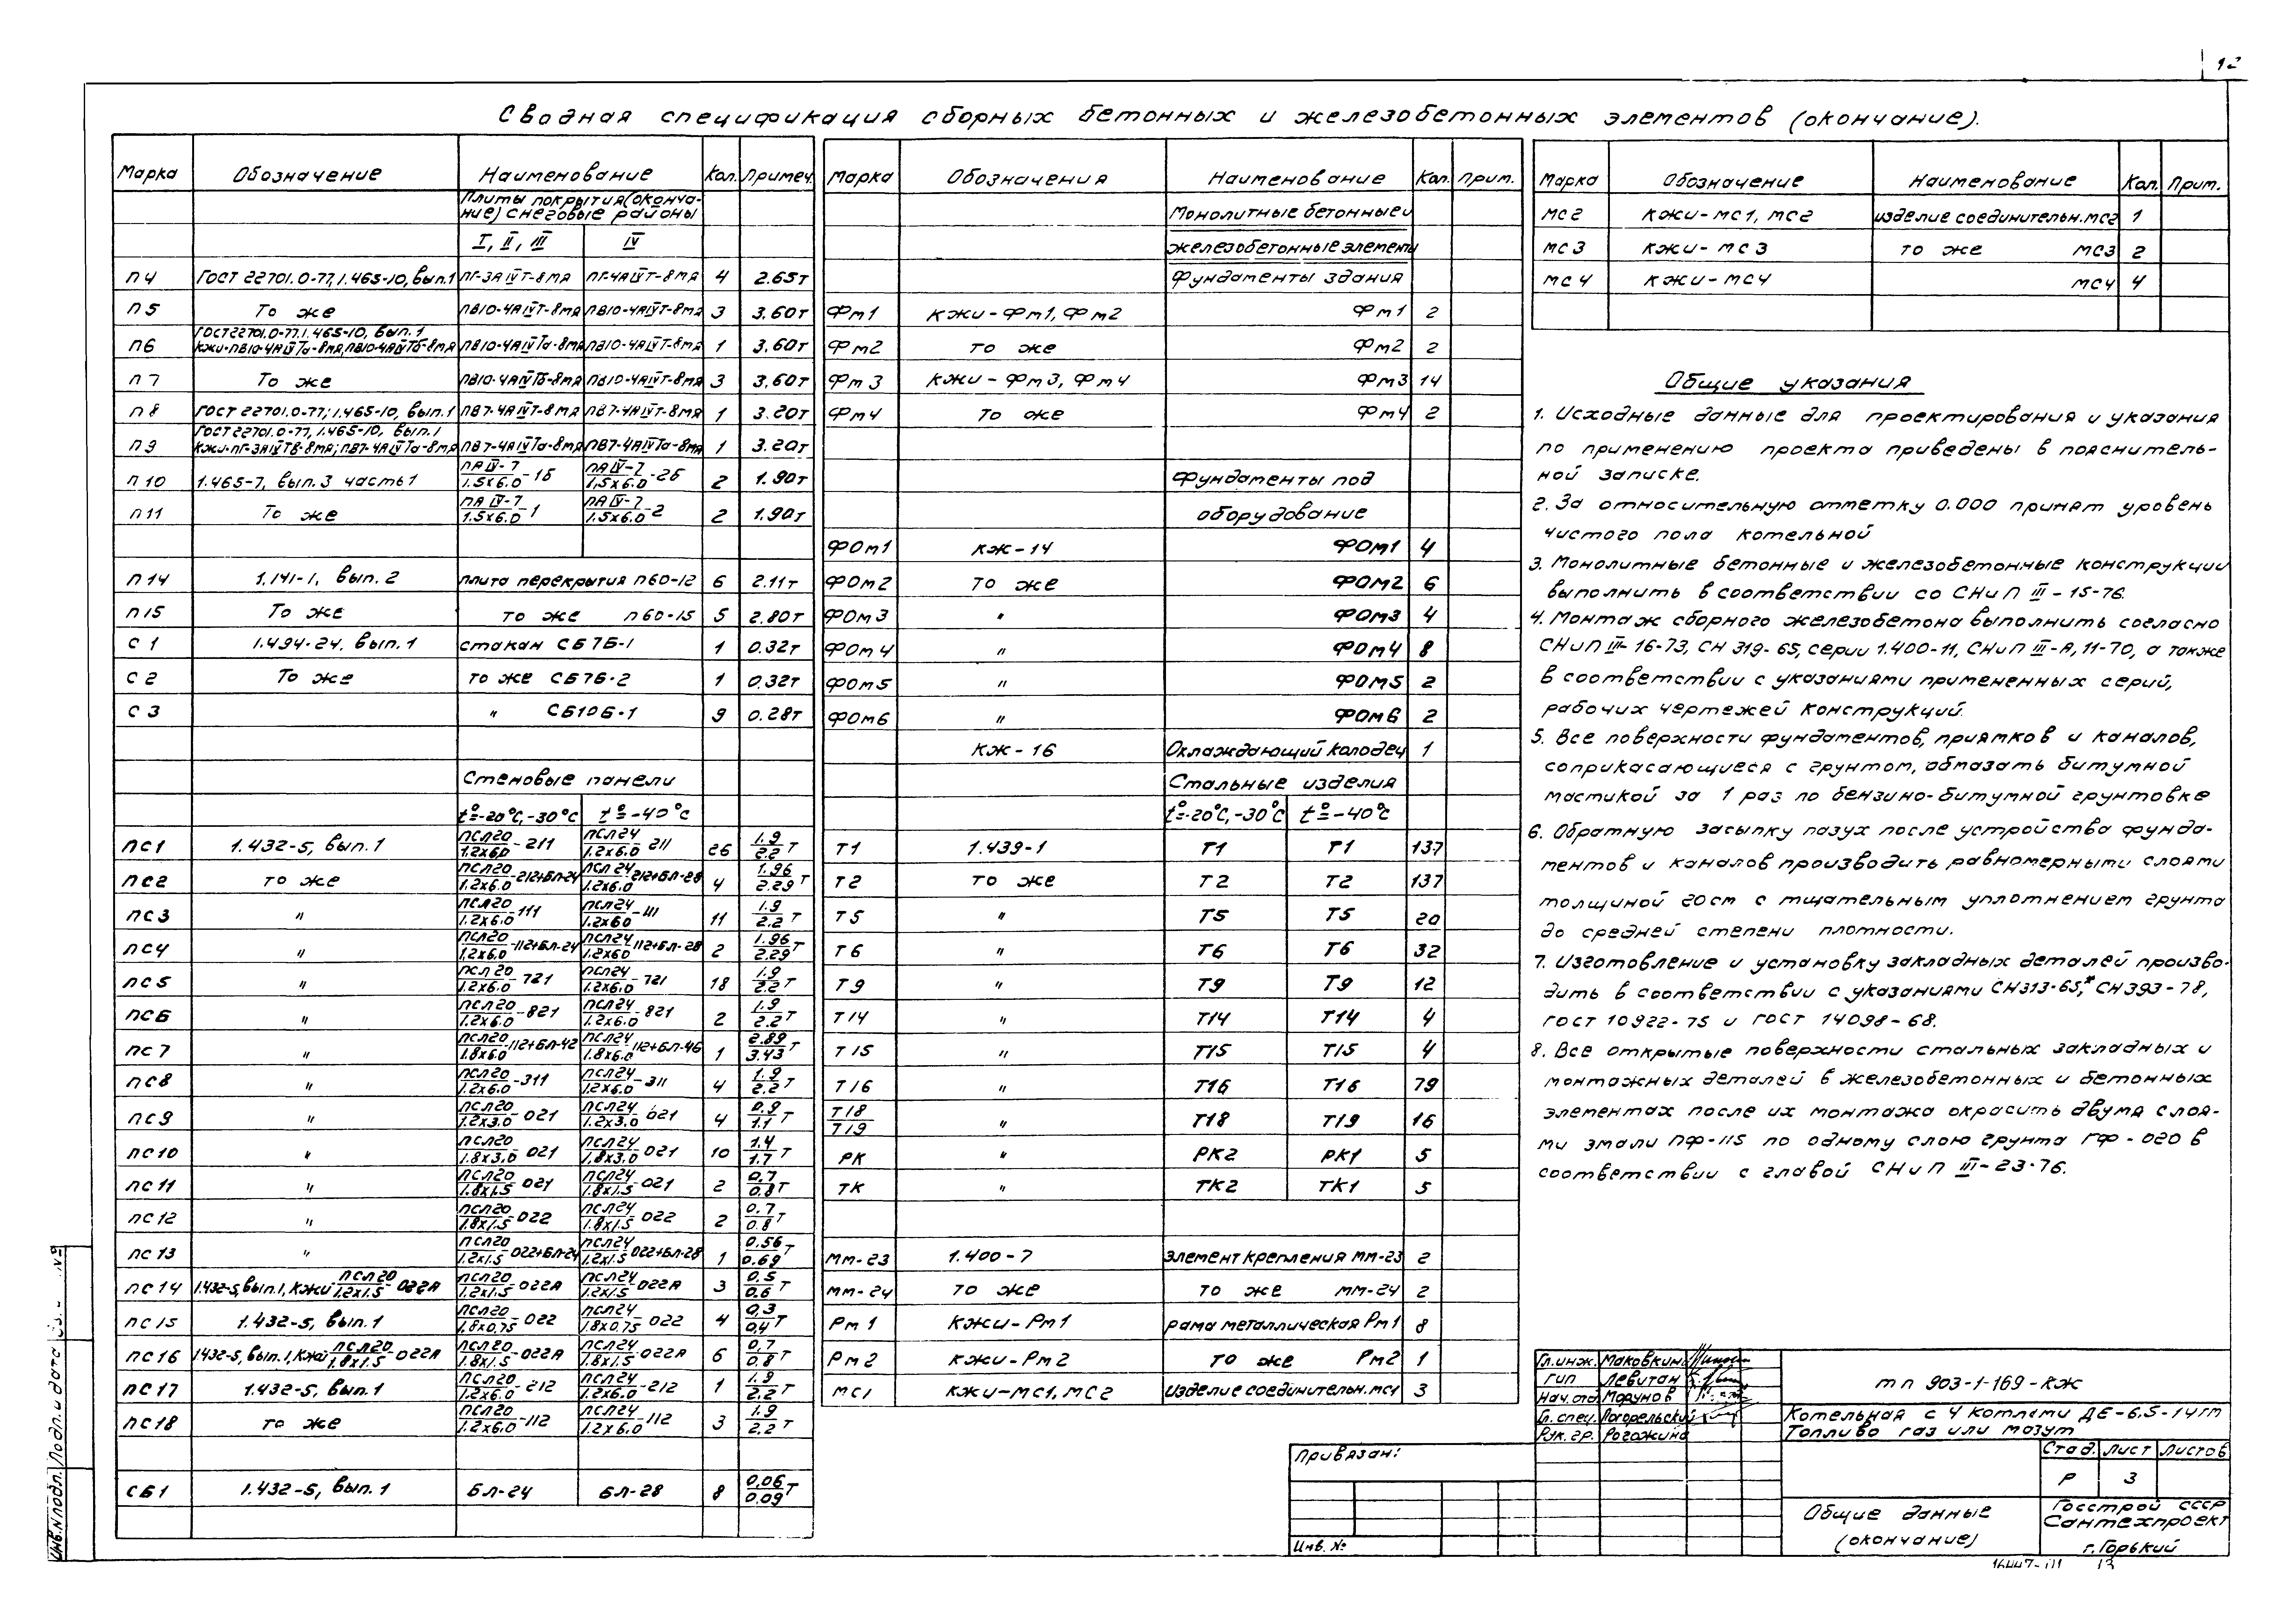 12
Сводная спецификация сборных бетонных и железобетонных элементов (окончание).
Марка Обозначение Наименование Кол. Примеч.
Плиты покрытия (оконча-
ние) снеговые районы
I, II, III IV
П4 ГОСТ 22701.0-77, 1.465-10, вып.1 ПГ-3АIVТ-8мя ПГ-4АIVТ-8мя 4 2.65т
П5 То же ПВ10-4АIVТ-8мя ПВ10-4АIVТ-8мя 3 3.60т
ГОСТ 22701.0-77, 1.465-10, вып.1
П6 КЖИ-ПВ10-4АIVТа-8мя, ПВ10-4АIVТб-8мя ПВ10-4АIVТа-8мя ПВ10-4АIVТ-8мя 1 3.60т
П7 То же ПВ10-4АIVТб-8мя ПВ10-4АIVТ-8мя 3 3.60т
П8 ГОСТ 22701.0-77; 1.465-10, вып.1 ПВ7-4АIVТ-8мя ПВ7-4АIVТ-8мя 1 3.20т
ГОСТ 22701.0-77, 1.465-10, вып.1
П9 КЖИ-ПГ-3АIVТв-8мя; ПВ7-4АIVТа-8мя ПВ7-4АIVТа-8мя ПВ7-4АIVТа-8мя 1 3.20т
П10 1.465-7, вып.3 часть 1 ПАIV-7/1.5х6.0-1б ПАIV-7/1.5х6.0-2б 2 1.90т
П11 То же ПАIV-7/1.5х6.0-1 ПАIV-7/1.5х6.0-2 2 1.90т
П14 1.141-1, вып.2 плита перекрытия П60-12 6 2.11т
П15 То же то же П60-15 5 2.80т
С1 1.494-24, вып.1 стакан СБ7Б-1 1 0.32т
С2 То же то же СБ7Б-2 1 0.32т
С3 " СБ10Б-1 9 0.28т
Стеновые панели
t°=-20°С,-30°С t°=-40°С
ПС1 1.432-5, вып.1 ПСЛ20/1.2х6.0-211 ПСЛ24/1.2х6.0 211 26 1.9/2.2 т
ПС2 то же ПСЛ20/1.2х6.0-212+БЛ-24 ПСЛ24/1.2х6.0 212+БЛ-28 4 1.96/2.29 т
ПС3 " ПСЛ20/1.2х6.0-111 ПСЛ24/1.2х60-111 11 1.9/2.2 т
ПС4 " ПСЛ20/1.2х6.0-112+БЛ-24 ПСЛ24/1.2х60 112+БЛ-28 2 1.96/2.29 т
ПС5 " ПСЛ20/1.2х6.0-721 ПСЛ24/1.2х6.0-721 18 1.9/2.2 т
ПС6 " ПСЛ20/1.2х6.0-821 ПСЛ24/1.2х6.0-821 2 1.9/2.2 т
ПС7 " ПСЛ20/1.8х6.0-112+БЛ-42 ПСЛ24/1.8х6.0 112+БЛ-46 1 2.89/3.43 т
ПС8 " ПСЛ20/1.2х6.0-311 ПСЛ24/1.2х6.0-311 4 1.9/2.2 т
ПС9 " ПСЛ20/1.2х3.0-021 ПСЛ24/1.2х3.0 021 4 0.9/1.1 т
ПС10 " ПСЛ20/1.8х3.0 021 ПСЛ24/1.8х3.0 021 10 1.4/1.7 т
ПС11 " ПСЛ20/1.8х1.5 021 ПСЛ24/1.8х1.5-021 2 0.7/0.8 т
ПС12 " ПСЛ20/1.8х1.5-022 ПСЛ24/1.8х1.5 022 2 0.7/0.8 т
ПС13 " ПСЛ20/1.2х1.5-022+БЛ-24 ПСЛ24/1.2х1.5 022+БЛ-28 1 0.56/0.69 т
ПС14 1.432-5, вып.1, КЖИ ПСЛ20/1.2х1.5-022А ПСЛ20/1.2х1.5-022А ПСЛ24/1.2х1.5-022А 3 0.5/0.6 т
ПС15 1.432-5, вып.1 ПСЛ20/1.8х0.75-022 ПСЛ24/1.8х0.75-022 4 0.3/0.4 т
ПС16 1.432-5, вып.1, КЖИ ПСЛ20/1.8х1.5-022А ПСЛ20/1.8х1.5-022А ПСЛ24/1.8х1.5-022А 6 0.7/0.8 т
ПС17 1.432-5, вып.1 ПСЛ20/1.2х6.0-212 ПСЛ24/1.2х6.0-212 1 1.9/2.2 т
ПС18 то же ПСЛ20/1.2х6.0-112 ПСЛ24/1.2х6.0-112 3 1.9/2.2 т
СБ1 1.432-5, вып.1 БЛ-24 БЛ-28 8 0.06/0.09 т
Марка Обозначения Наименование Кол. Прим.
Монолитные бетонные и
железобетонные элементы
Фундаменты здания
Фм1 КЖИ-Фм1, Фм2 Фм1 2
Фм2 то же Фм2 2
Фм3 КЖИ-Фм3, Фм4 Фм3 14
Фм4 то же Фм4 2
Фундаменты под
оборудование
ФОм1 КЖ-14 ФОм1 4
ФОм2 то же ФОм2 6
ФОм3 " ФОм3 4
ФОм4 " ФОм4 8
ФОм5 " ФОм5 2
ФОм6 " ФОм6 2
КЖ-16 Охлаждающий колодец 1
Стальные изделия
t°=-20°С,-30°С t°=-40°С
Т1 1.439-1 Т1 Т1 137
Т2 то же Т2 Т2 137
Т5 " Т5 Т5 20
Т6 " Т6 Т6 32
Т9 " Т9 Т9 12
Т14 " Т14 Т14 4
Т15 " Т15 Т15 4
Т16 " Т16 Т16 79
Т18/Т19 " Т18 Т19 16
РК " РК2 РК1 5
ТК " ТК2 ТК1 5
ММ-23 1.400-7 элемент крепления ММ-23 2
ММ-24 то же то же ММ-24 2
Рм1 КЖИ-Рм1 рама металлическая Рм1 8
Рм2 КЖИ-Рм2 то же Рм2 1
МС1 КЖИ-МС1, МС2 Изделие соединительн. МС1 3
Марка Обозначение Наименование Кол. Прим.
МС2 КЖИ-МС1, МС2 изделие соединительн. МС2 1
МС3 КЖИ-МС3 то же МС3 2
МС4 КЖИ-МС4 МС4 4
Общие указания
1. Исходные данные для проектирования и указания
по применению проекта приведены в пояснитель-
ной записке.
2. За относительную отметку 0.000 принят уровень
чистого пола котельной
3. Монолитные бетонные и железобетонные конструкции
выполнить в соответствии со СНиП III-15-76.
4. Монтаж сборного железобетона выполнить согласно
СНиП III-16-73, СН 319-65, серии 1.400-11, СНиП III-А, 11-70, а также
в соответствии с указаниями примененных серий,
рабочих чертежей конструкций.
5. Все поверхности фундаментов, приямков и каналов,
соприкасающиеся с грунтом, обмазать битумной
мастикой за 1 раз по бензино-битумной грунтовке
6. Обратную засыпку пазух после устройства фунда-
ментов и каналов производить равномерными слоями
толщиной 20см с тщательным уплотнением грунта
до средней степени плотности.
7. Изготовление и установку закладных деталей произво-
дить в соответствии с указаниями СН313-65,* СН393-78,
ГОСТ 10922-75 и ГОСТ 14098-68.
8. Все открытые поверхности стальных закладных и
монтажных деталей в железобетонных и бетонных
элементах после их монтажа окрасить двумя слоя-
ми эмали ПФ-115 по одному слою грунта ГФ-020 в
соответствии с главой СНиП III-23-76.
Гл.инж. Маковкин
ГИП Левитан
Нач.отд Морунов
Гл.спец. Погорельский
Рук.гр. Рогожина
ТП 903-1-169-КЖ
Котельная с 4 котлами ДЕ-6.5-14ГМ
Топливо газ или мазут
Стад. Лист Листов
Р 3
Общие данные
(окончание)
Госстрой СССР
Сантехпроект
г.Горький
Привязан:
Инв. №
Инв.№подл. Подп.и дата
13